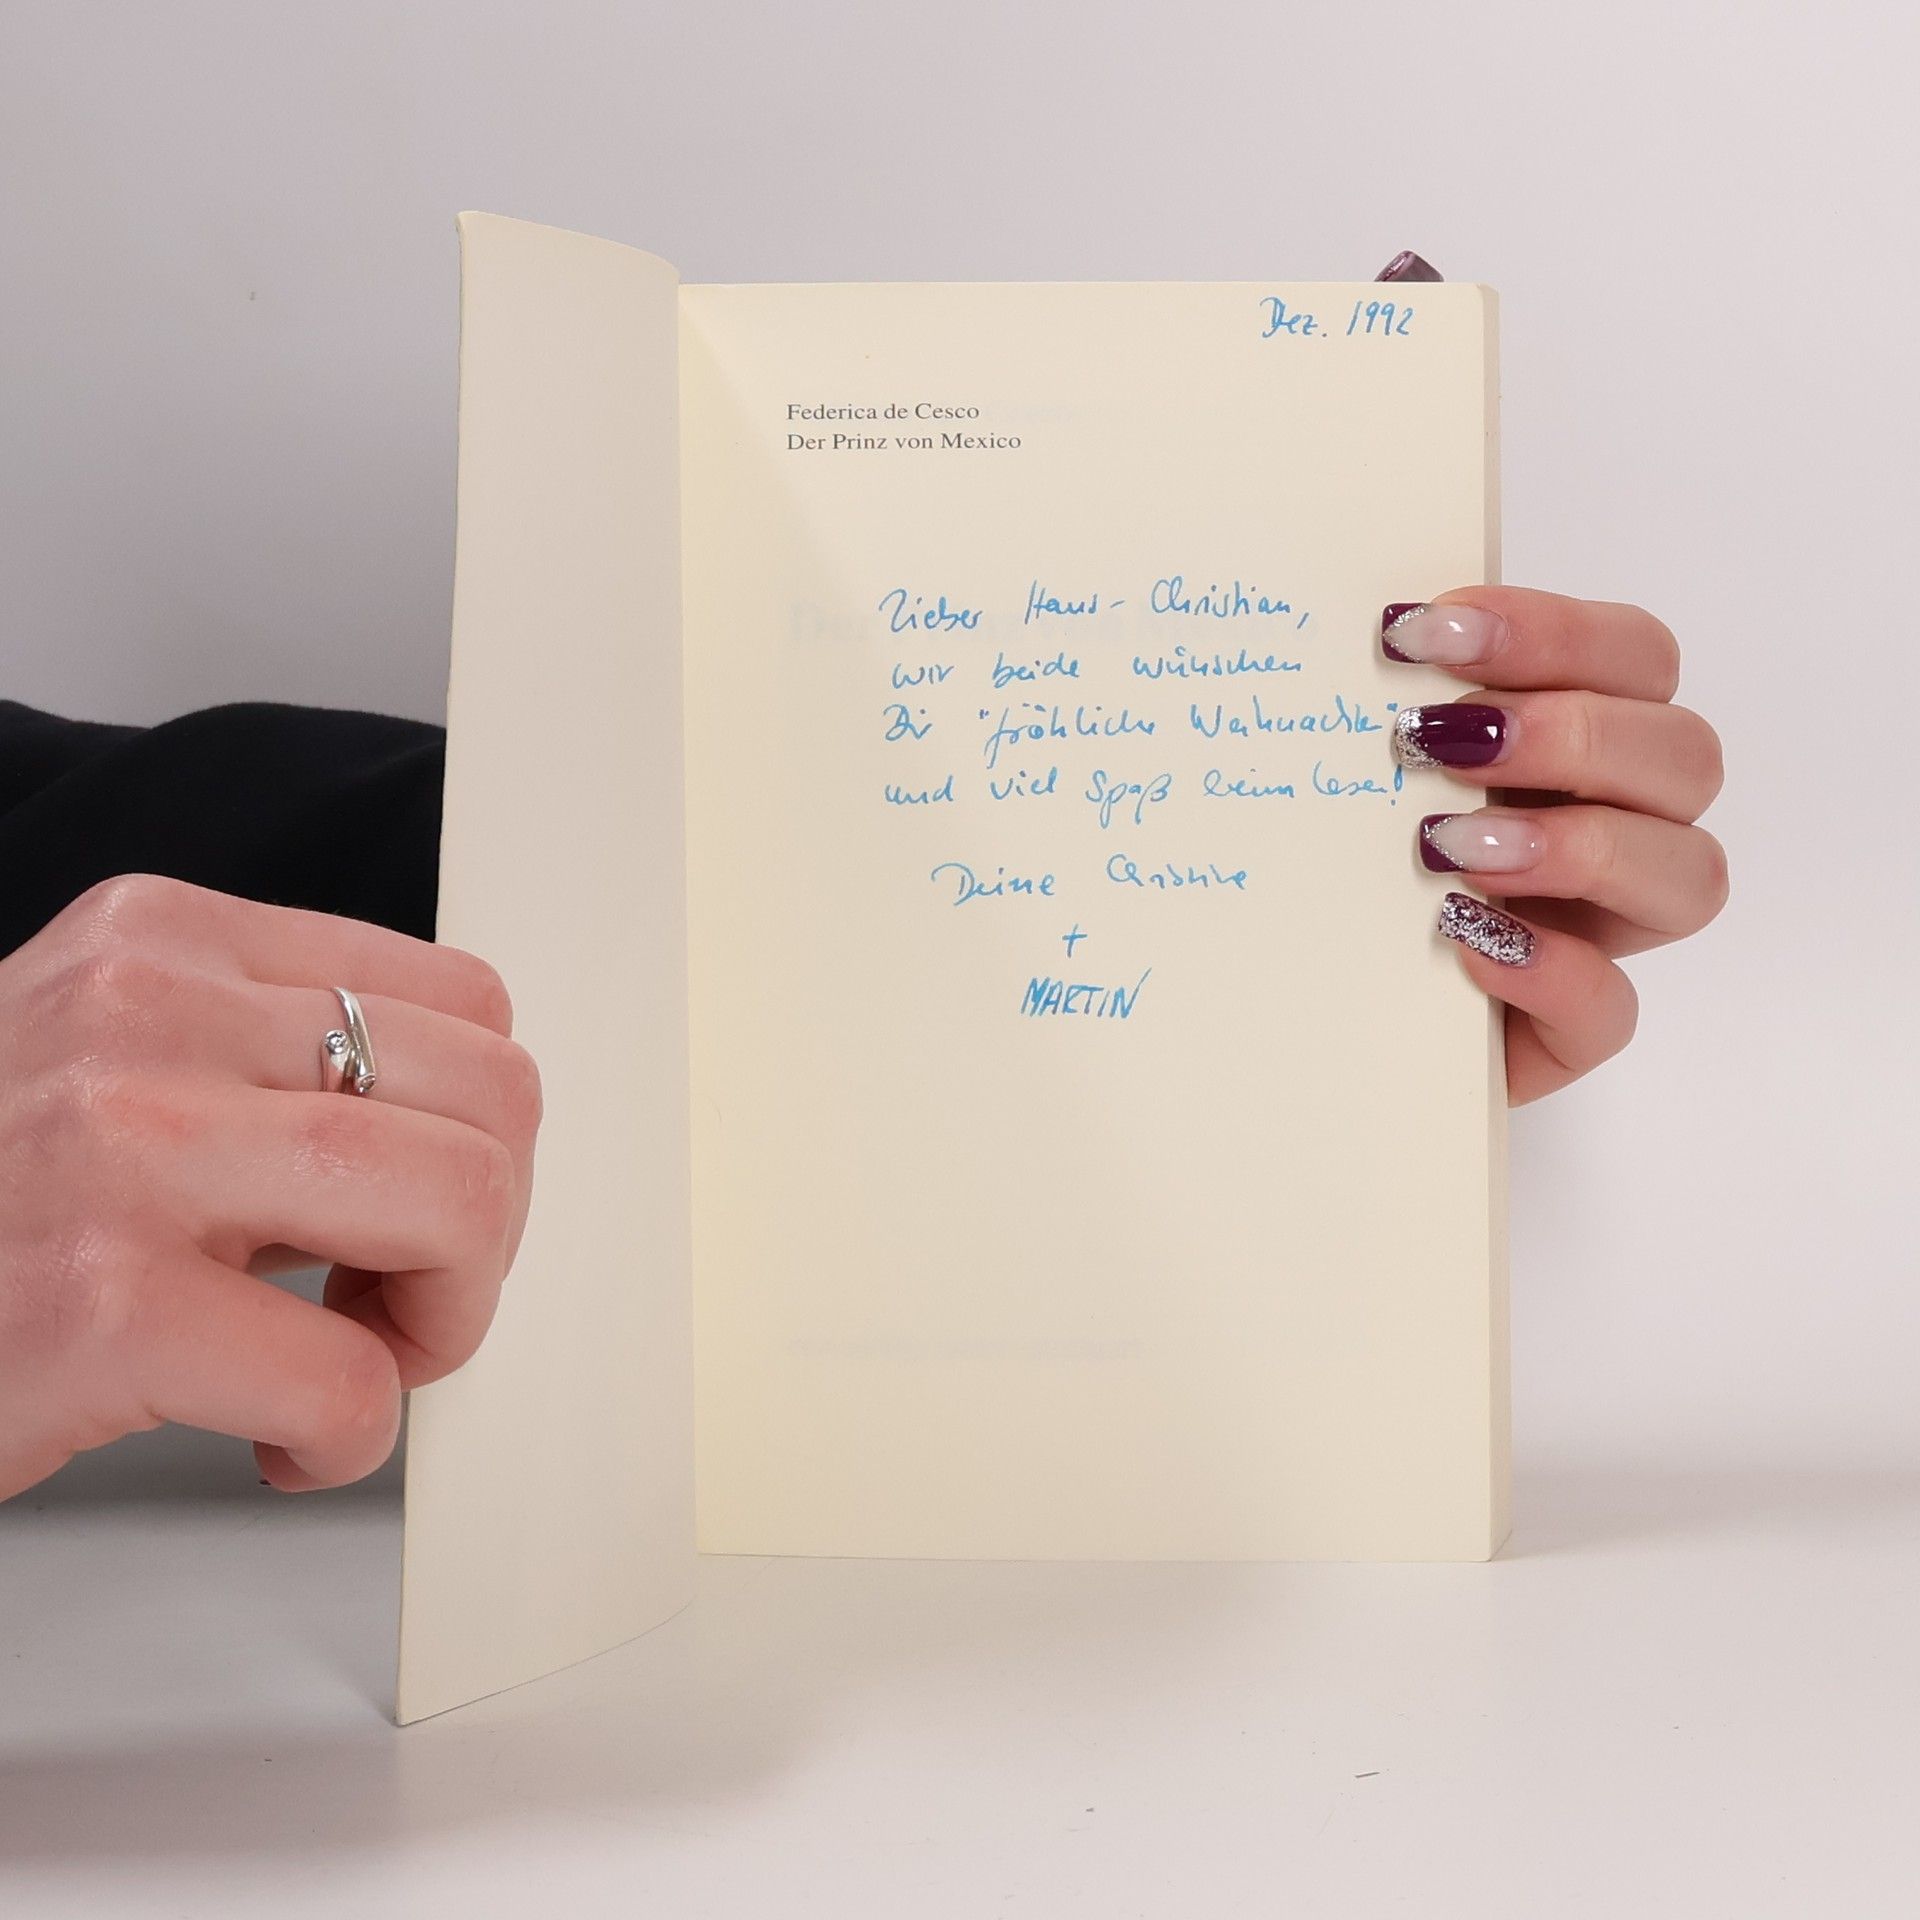 Dez. 1992
Federica de Cesco
Der Prinz von Mexico
Lieber Hans-Christian,
wir beide wünschen
Dir "fröhliche Weihnachten"
und viel Spaß beim Lesen!
Deine Christine
+
MARTIN